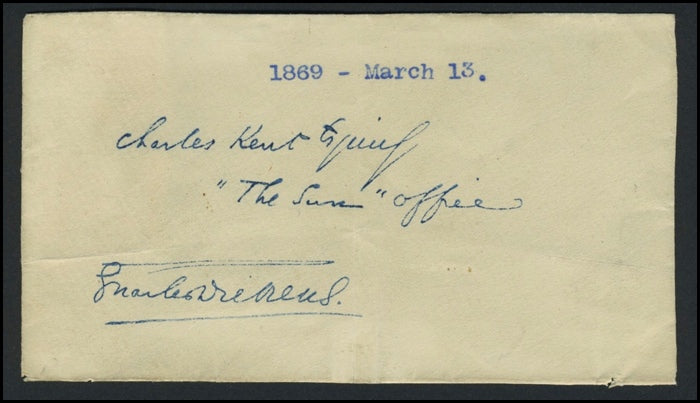 1869 - March 13.
Charles Kent Esquire
"The Sun" Office
Charles Dickens.